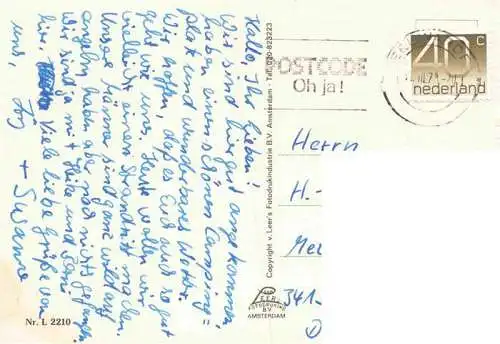 Hallo, Ihr Lieben!
Wir sind hier gut angekommen,
haben einen schönen Camping=
platz und wunderbares Wetter.
Wir hoffen, daß es Euch auch so gut
geht wie uns. Heute wollen wir
vielleicht einen Strandritt machen.
Unsere Männer sind ganz wild auf
angeln, haben aber noch nichts gefangen.
Wir sind ja mit Heike und
hier. Viele liebe Grüße von
uns Jörg + Susanne
Nr. L 2210
Copyright v. Leer's Fotodrukindustrie B.V. Amsterdam - Tel. 020-823223
VAN LEER
FOTODRUKIND
BV
AMSTERDAM
POSTCODE
Oh ja!
40 c
nederland
Herrn
H.-
Mel
341-
D